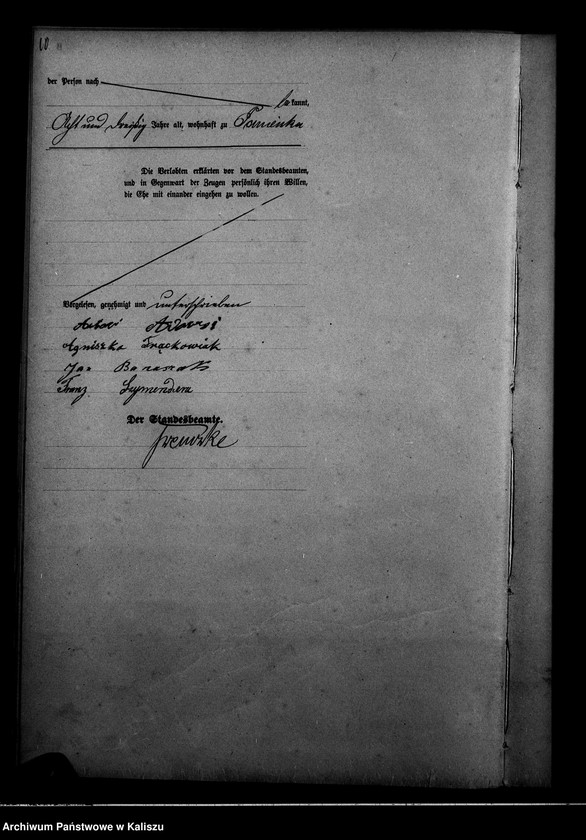 10
der Person nach
bekannt,
Acht und dreißig Jahre alt, wohnhaft zu
Die Verlobten erklärten vor dem Standesbeamten,
und in Gegenwart der Zeugen persönlich ihren Willen,
die Ehe mit einander eingehen zu wollen.
Vorgelesen, genehmigt und unterschrieben
Antoni
Agniszka Frąckowiak
Jan
Franz
Der Standesbeamte.
Archiwum Państwowe w Kaliszu